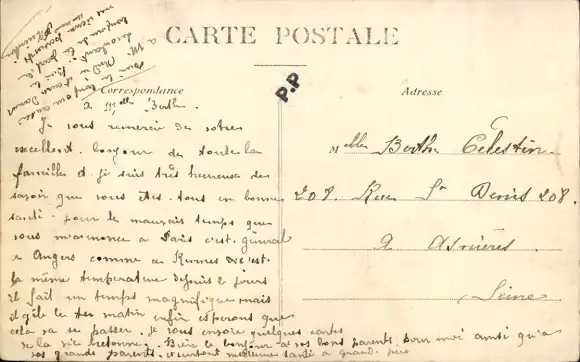 CARTE POSTALE
Correspondance
Adresse
P.P
a Melle Berthe.
Je vous remercie de votres
excellent. bonjour de toute la
famille et. je suis très heureuse de
savoir que vous êtes. tous en bonne
santé. pour le mauvais temps que
vous m'annonce a Paris c'est. général
a Angers comme au Rennes c'est
la même température depuis 2 jours
il fait un temps magnifique mais
il gèle le matin enfin esperons que
cela va se passer. je vous envoie quelques cartes
de la vie bretonne. Bien le bonjour a vos bons parents. pour moi ainsi qu'a
vos grands parents. et surtout meilleure santé a grand. père
Melle Berthe Celestin.
208. Rue St Denis 208.
a Asnières.
Seine